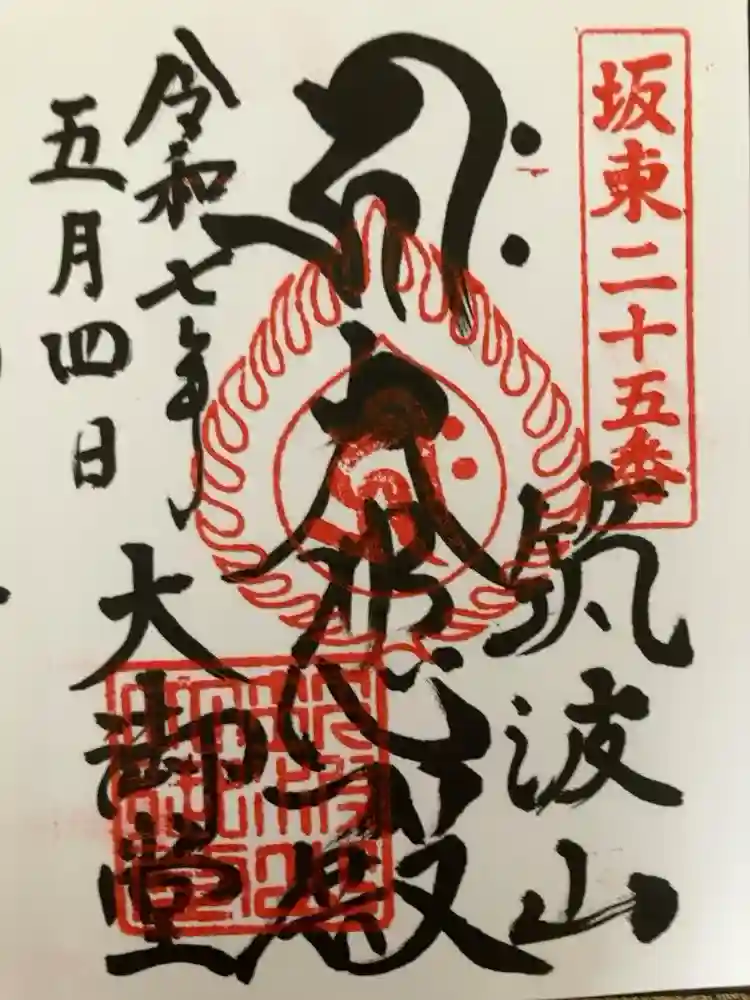 坂東二十五番
筑波山
大悲殿
大御堂
令和七年
五月四日